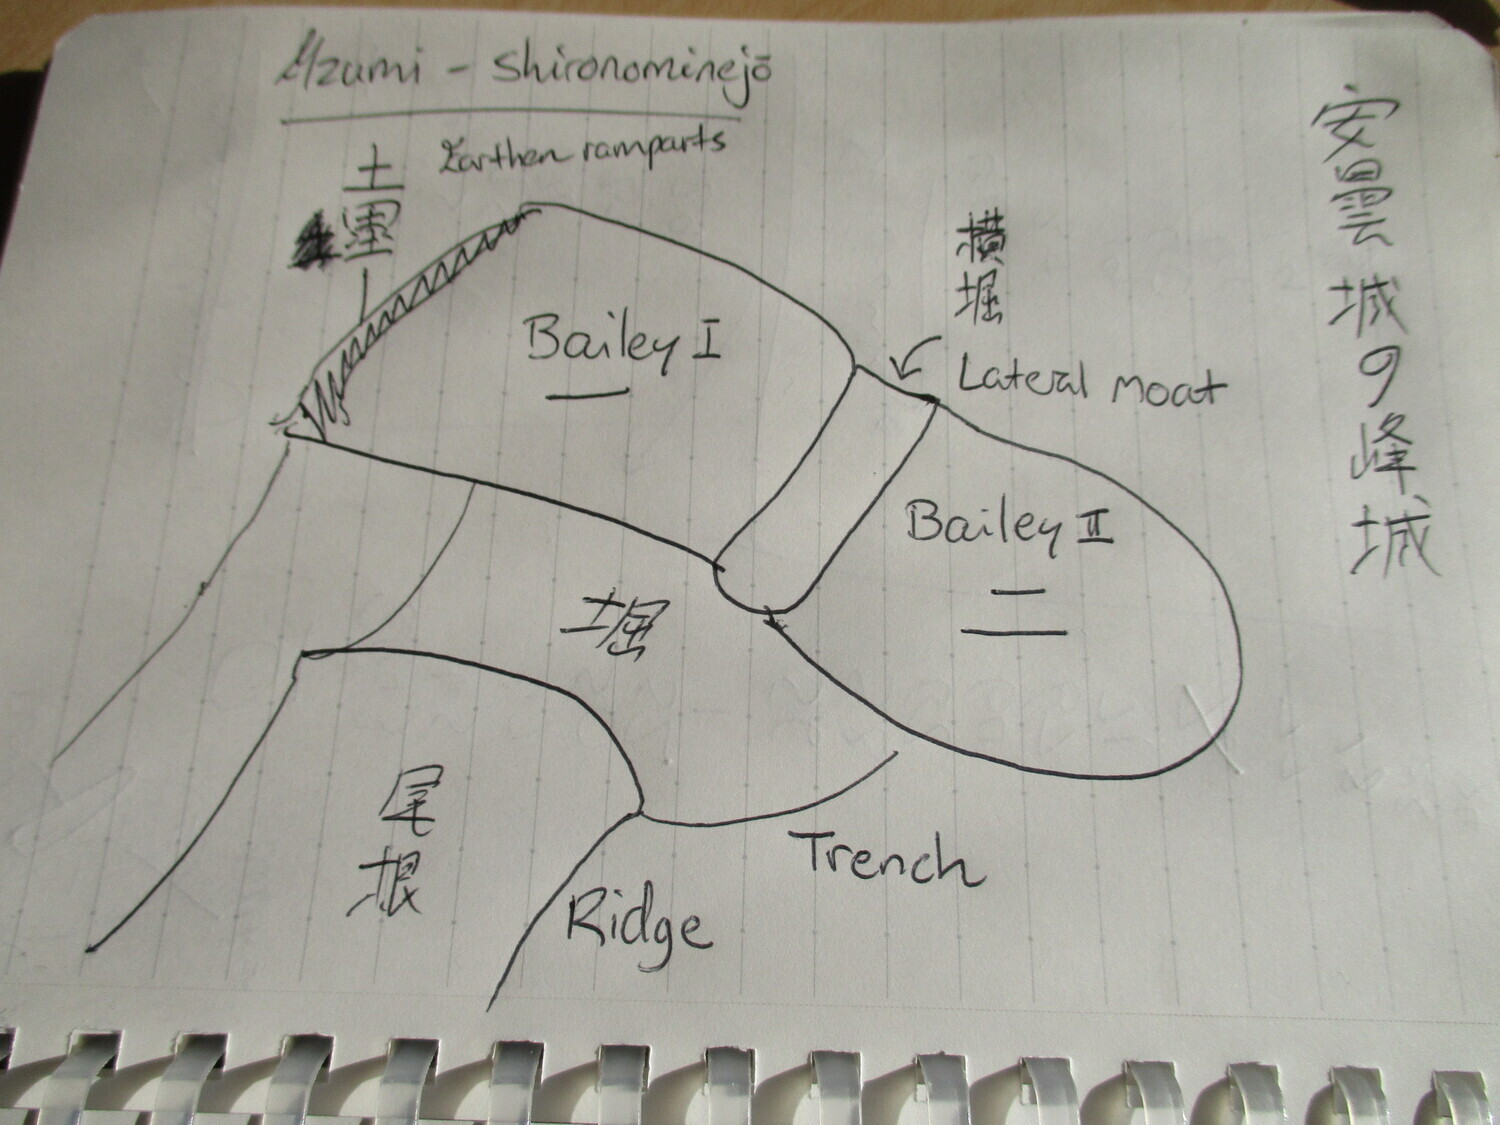 Azumi - Shironominejō
Earthen ramparts
土塁
安曇城の峰城
横堀
Lateral moat
Bailey I
一
Bailey II
二
堀
尾根
Ridge
Trench